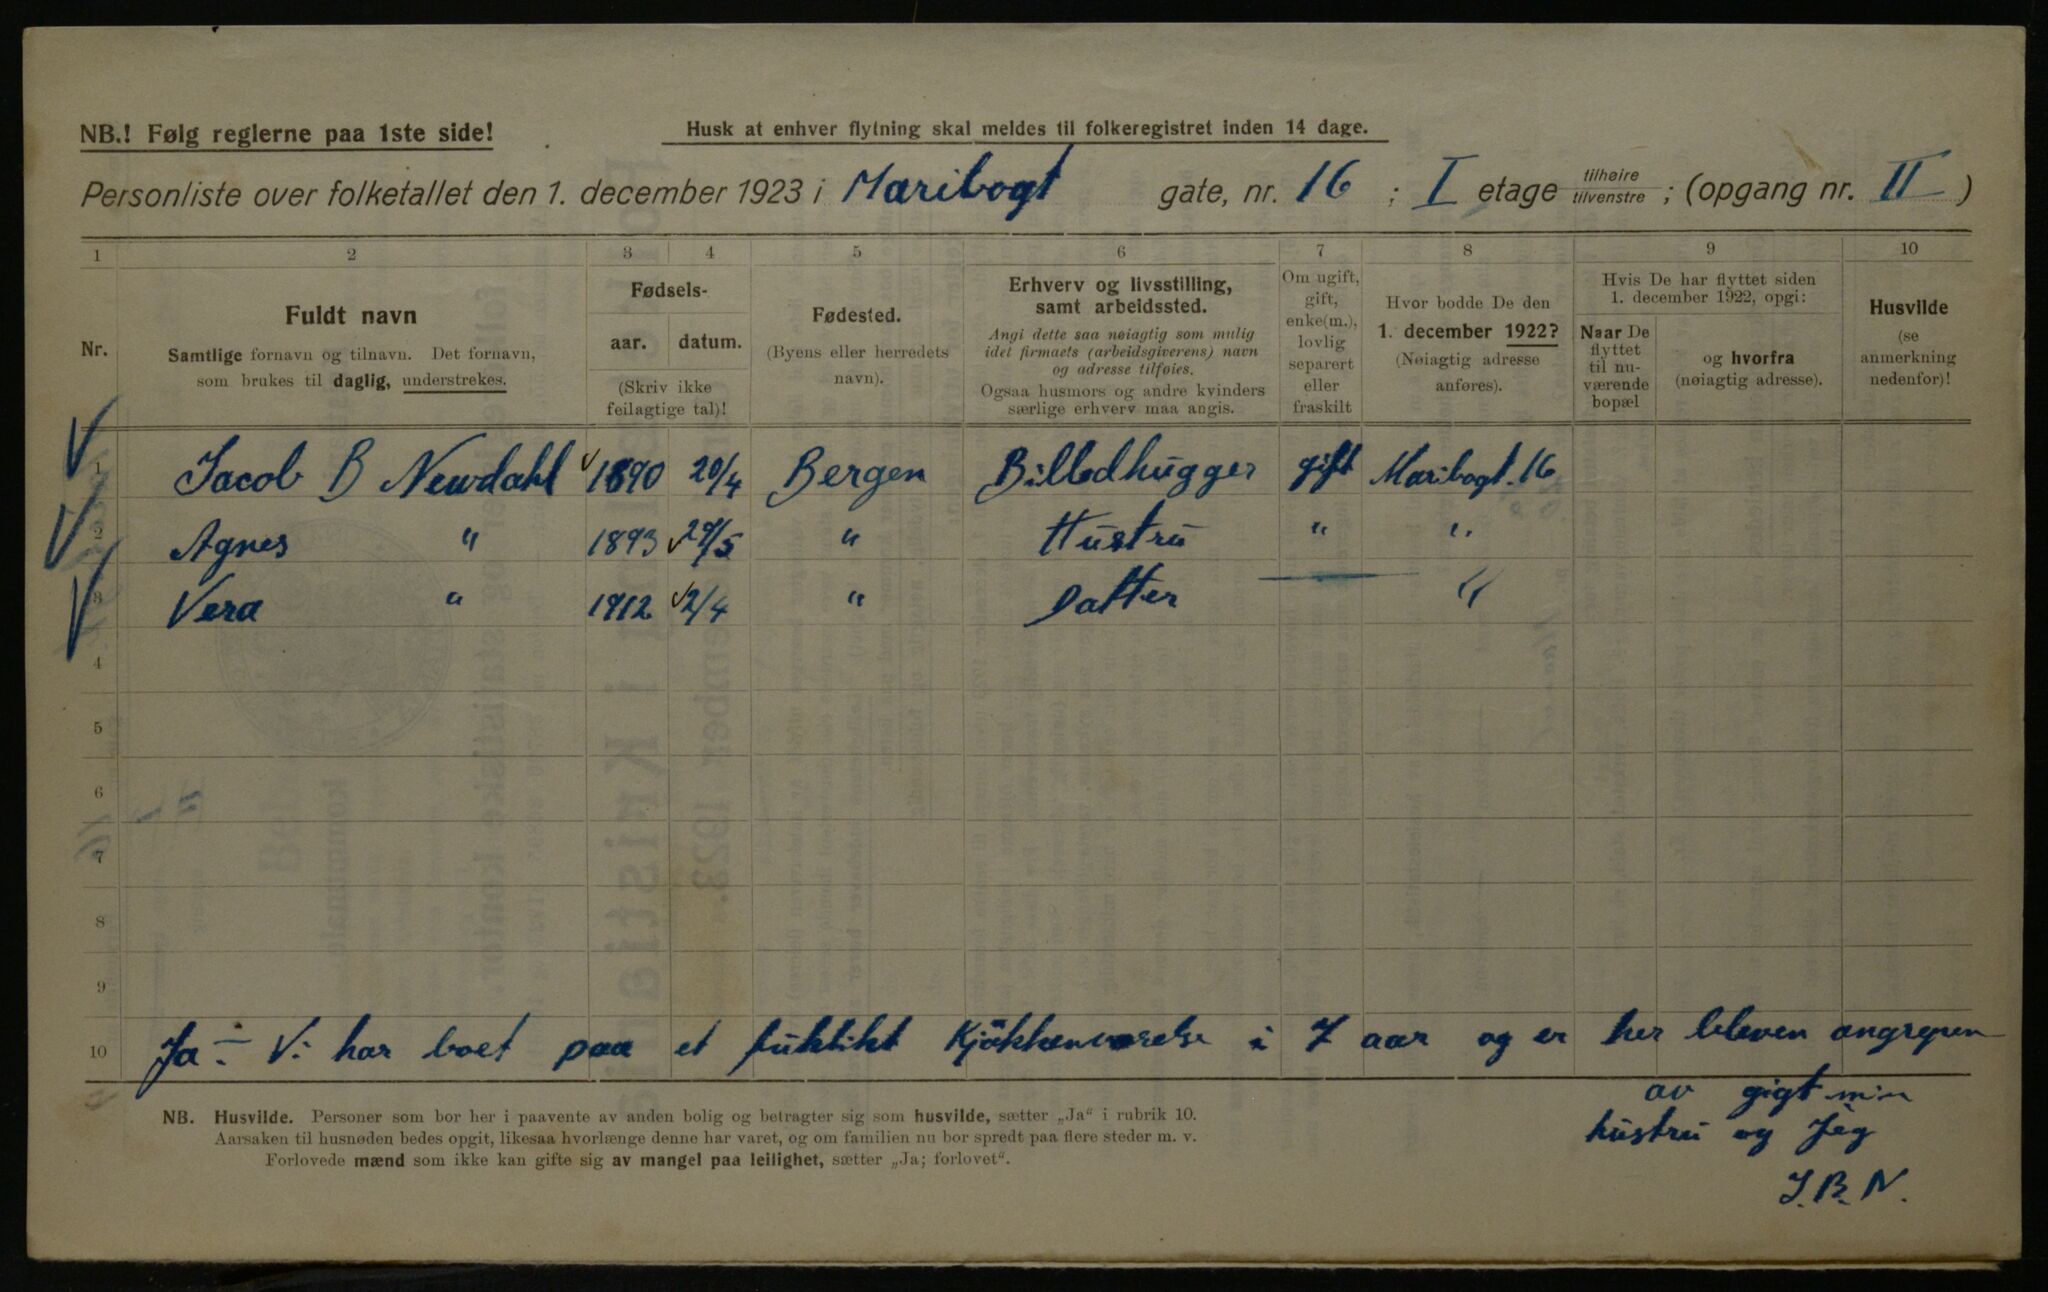 NB.! Følg reglerne paa 1ste side!
Husk at enhver flytning skal meldes til folkeregistret inden 14 dage.
Personliste over folketallet den 1. december 1923 i Maribogt gate, nr. 16 ; I etage tilhøire tilvenstre ; (opgang nr. II )
1 2 3 4 5 6 7 8 9 10
Nr.
Fuldt navn
Samtlige fornavn og tilnavn. Det fornavn,
som brukes til daglig, understrekes.
Fødsels-
aar. datum.
(Skriv ikke
feilagtige tal)!
Fødested.
(Byens eller herredets
navn).
Erhverv og livsstilling,
samt arbeidssted.
Angi dette saa nøiagtig som mulig
idet firmaets (arbeidsgiverens) navn
og adresse tilføies.
Ogsaa husmors og andre kvinders
særlige erhverv maa angis.
Om ugift,
gift,
enke(m.),
lovlig
separert
eller
fraskilt
Hvor bodde De den
1. december 1922?
(Nøiagtig adresse
anføres).
Hvis De har flyttet siden
1. december 1922, opgi:
Naar De
flyttet
til nu-
værende
bopæl
og hvorfra
(nøiagtig adresse).
Husvilde
(se
anmerkning
nedenfor)!
1 Jacob B Neuwdahl 1890 20/4 Bergen Billedhugger gift Maribogt. 16
2 Agnes " 1893 29/5 " Hustru " "
3 Vera " 1912 2/4 " Datter "
4
5
6
7
8
9
10 Ja – Vi har boet paa et fuktikt Kjökkenværelse i 7 aar og er her bleven angrepen
av gigt min
hustru og Jeg
J. B. N.
NB. Husvilde. Personer som bor her i paavente av anden bolig og betragter sig som husvilde, sætter „Ja" i rubrik 10.
Aarsaken til husnøden bedes opgit, likesaa hvorlænge denne har varet, og om familien nu bor spredt paa flere steder m. v.
Forlovede mænd som ikke kan gifte sig av mangel paa leilighet, sætter „Ja; forlovet".